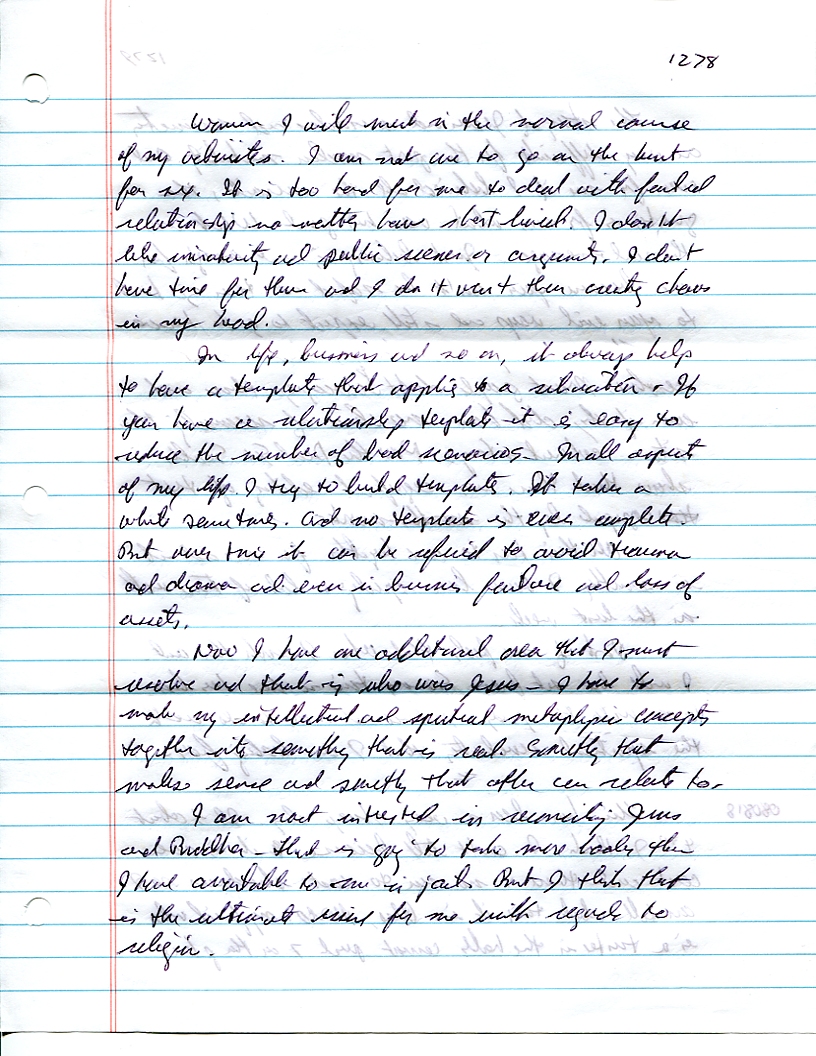 1278
Women I will meet in the normal course
of my activities. I am not one to go on the hunt
for sex. It is too hard for me to deal with failed
relationship no matter how short lived. I don't
like immaturity and public scenes or arguments. I don't
have time for them and I don't want them creating chaos
in my head.
In life, business and so on, it always help
to have a template that applies to a situation. If
you have a relationship template it is easy to
reduce the number of bad scenarios. In all aspects
of my life I try to build templates. It takes a
while sometimes. And no template is ever complete.
But over time it can be refined to avoid trauma
and drama and even in business failure and loss of
assets.
Now I have one additional area that I must
resolve and that is who was Jesus - I have to
make my intellectual and spiritual metaphysic concepts
together into something that is real. Something that
makes sense and something that other can relate to.
I am not interested in reconciling Jesus
and Buddha - that is going to take more books than
I have available to me in jail. But I think that
is the ultimate for me with regards to
religion.